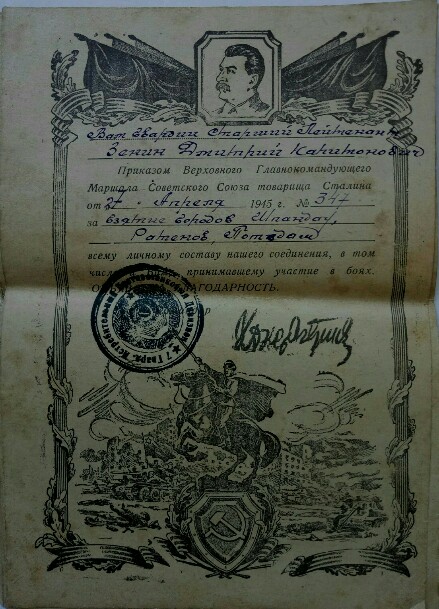 Вам Гвардии Старший Лейтенант
Зенин Дмитрий Харитонович
Приказом Верховного Главнокомандующего
Маршала Советского Союза товарища Сталина
от 27 Апреля 1945 г. № 347
за взятие городов Шпандау,
Ратенов, Потсдам
всему личному составу нашего соединения, в том
принимавшему участие в боях.
БЛАГОДАРНОСТЬ.